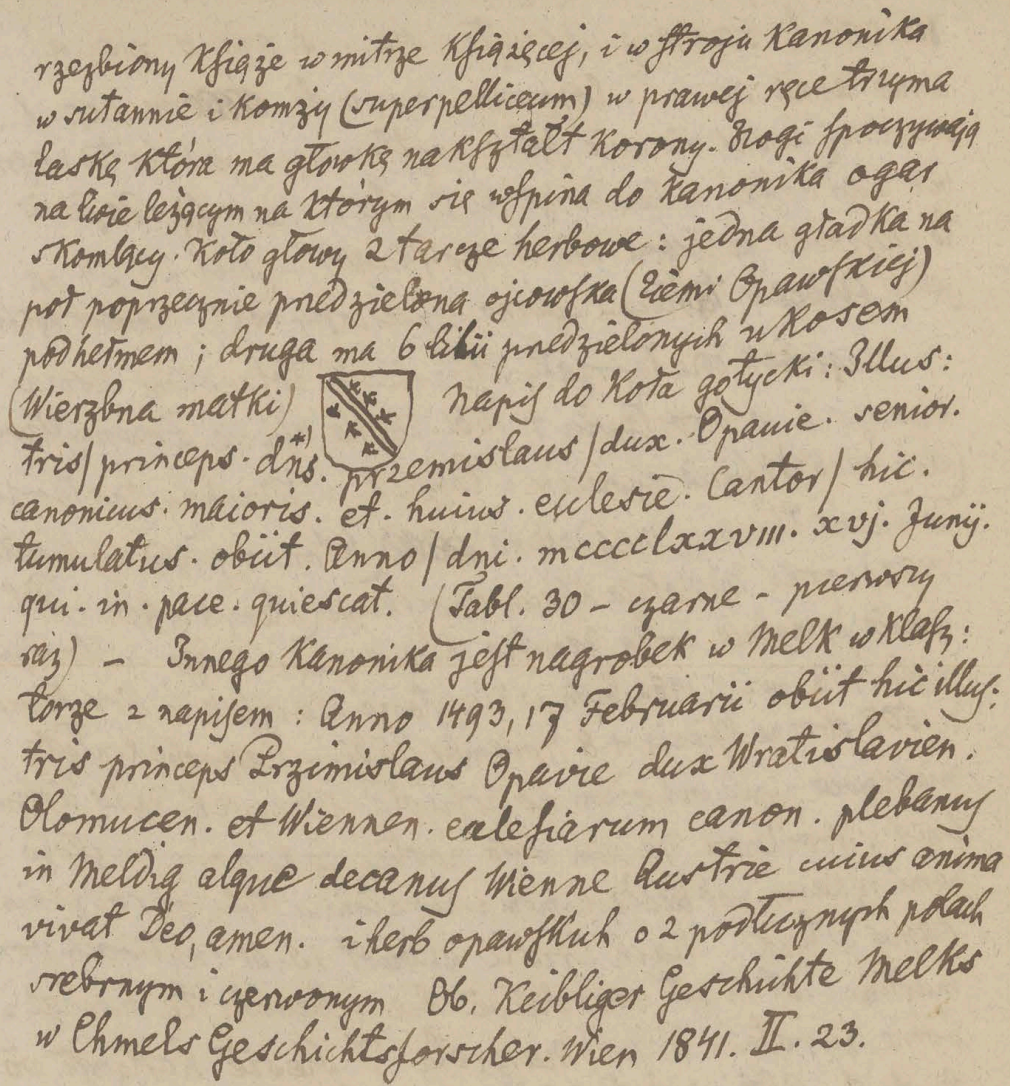 rzeźbiony Książe w mitrze Książęcej, i w stroju Kanonika
w sutannie i Komży (superpelliceum) w prawej ręce trzyma
łaskę która ma głowkę na kształt Korony. Nogi spoczywają
na lwie leżącym na którym się wspina do kanonika ogar
skomlący. Koło głowy 2 tarcze herbowe: jedna gładka na
poł poprzecznie przedzielona ojcowska (Ziemi Opawskiej)
pod hełmem; druga ma 6 lilii przedzielonych ukosem
(Wierzbna matki) Napis do Koła gotycki: Illus:
tris / princeps. dn̄s. *) przemislaus / dux. Opavie. senior.
canonicus. maioris. et. huius. ecclesie. Cantor / hic.
tumulatus. obiit. Anno / dni. mcccclxxviii. xvj. Junij.
qui. in. pace. quiescat. (Tabl. 30 – czarne – pierwszy
raz) – Innego Kanonika jest nagrobek w Melk w klasz:
torze z napisem: Anno 1493, 17 Februarii obiit hic illus:
tris princeps Przimislaus Opavie dux Wratislavien.
Olomucen. et Wiennen. ecclesiarum canon. plebanus
in Meldig atque decanus Wienne Austrie cuius anima
vivat Deo, amen. i herb opawskich o 2 podłużnych polach
srebrnym i czerwonym Ob. Keibliger Geschichte Melks
w Chmels Geschichtsforscher. Wien 1841. II. 23.